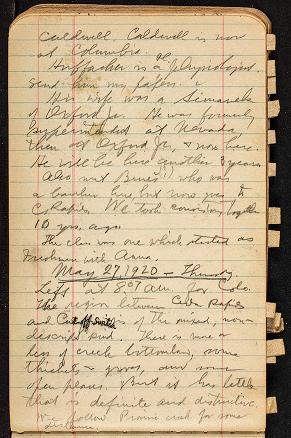 Caldwell. Caldwell is now
at Columbia.
Huffacker is a Phrynologist.
send him my papers.
His wife was a
of Oxford Ia. He was formerly
Superintendent at Nevada,
then at Oxford Ja, & now here.
He will be here another 3 years
Also met who was
a here but now goes to
C. Rapids. We took together
10 yrs. ago.
The class was one which started as
Freshmen with Anna.
May 27, 1920 - Thursday
Left at 8:07 am. for Colo.
The region between Cedar Rapids
and is of the mixed, non-
descript kind. There is more or
less of creek bottomland, some
thickets & groves, and some
open places. But it has little
that is definite and distinctive.
We follow Prairie creek for some
distance.